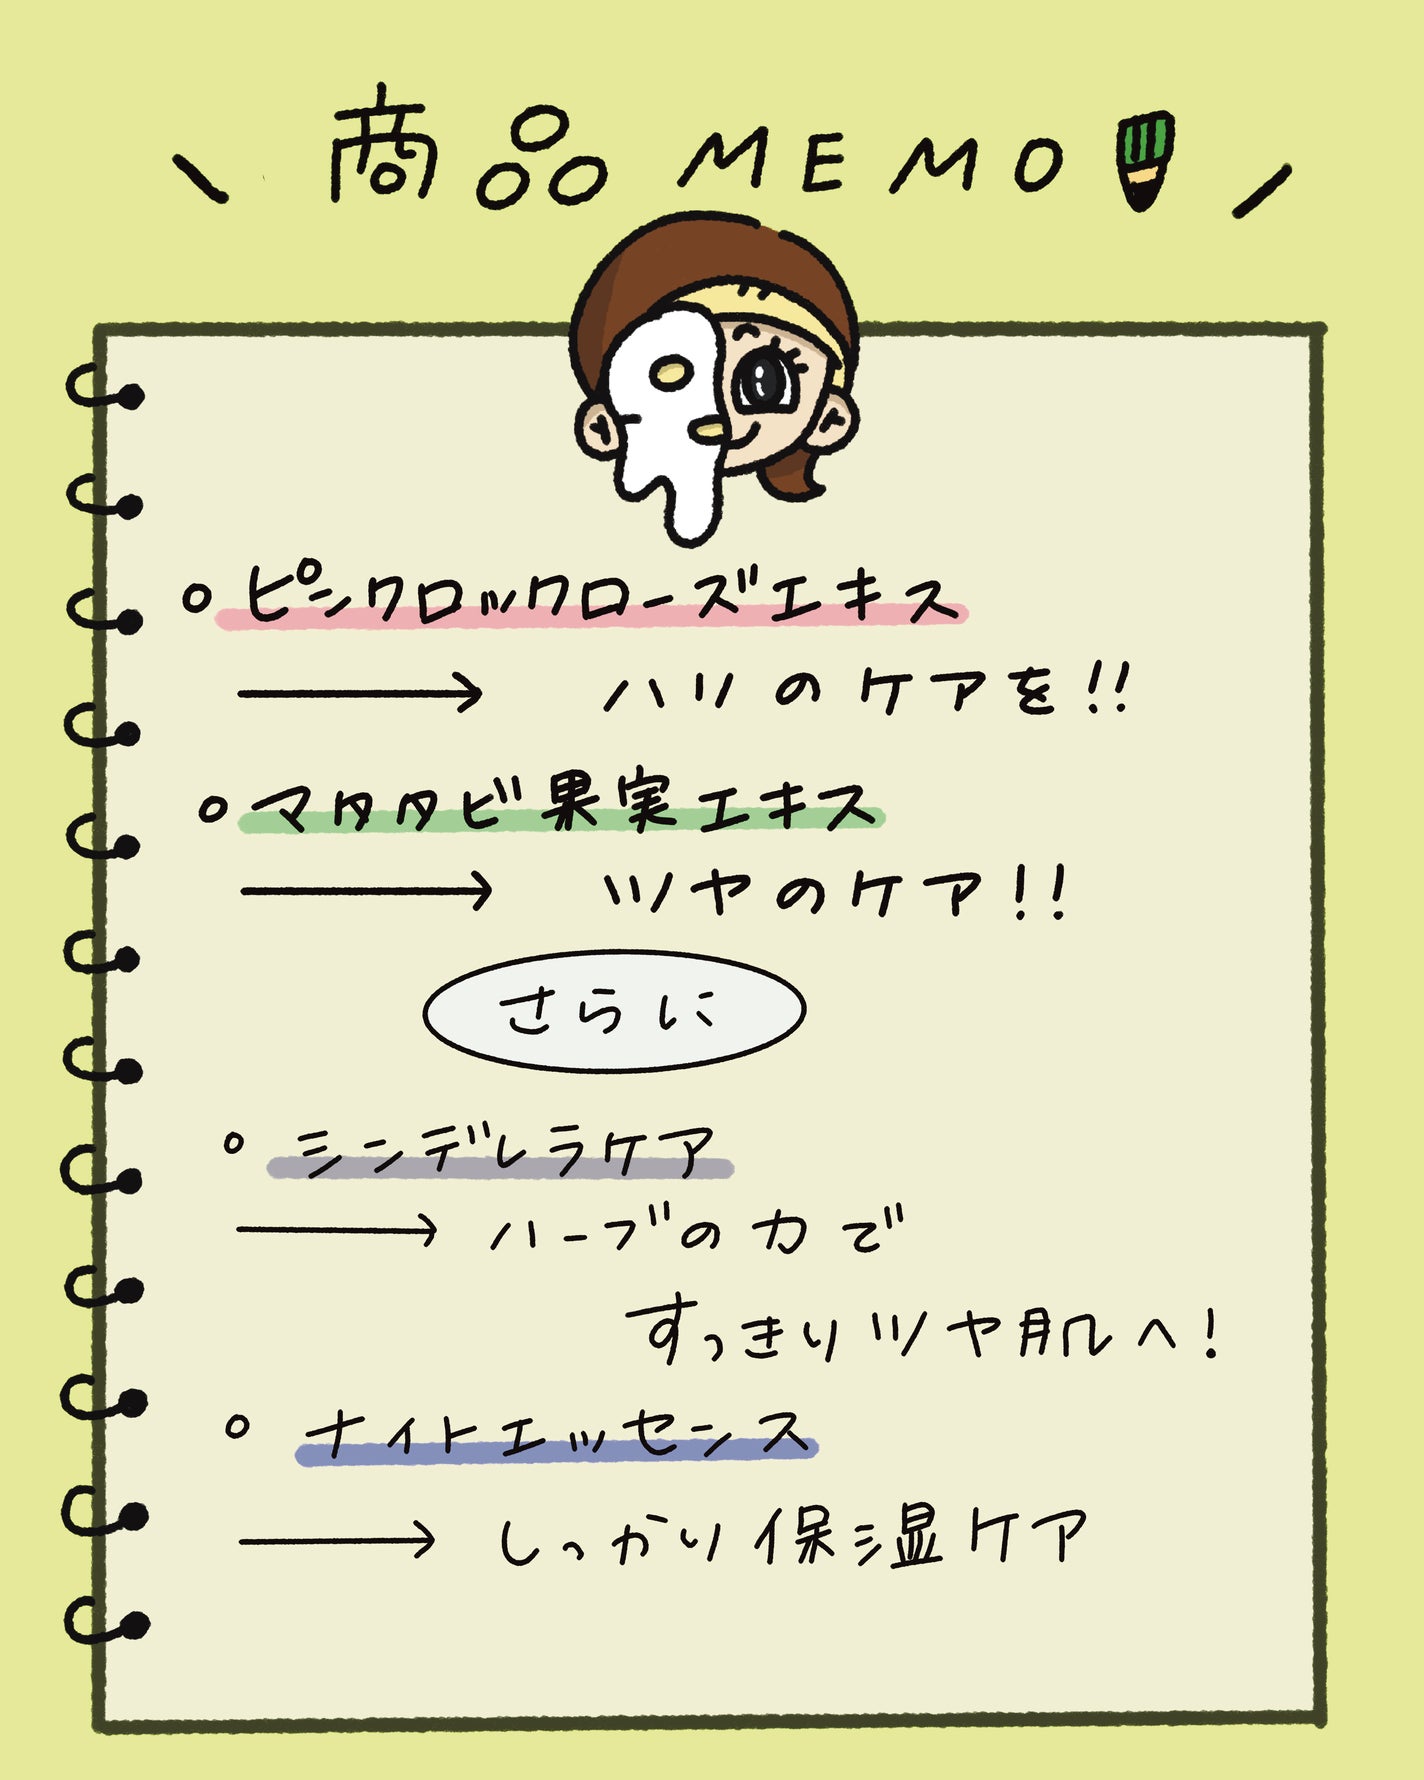 \ 商品MEMO /
○ピンクロックローズエキス
→ ハリのケアを!!
○マタタビ果実エキス
→ ツヤのケア!!
さらに
○シンデレラケア
→ハーブの力で
すっきりツヤ肌へ!
○ナイトエッセンス
→しっかり保湿ケア